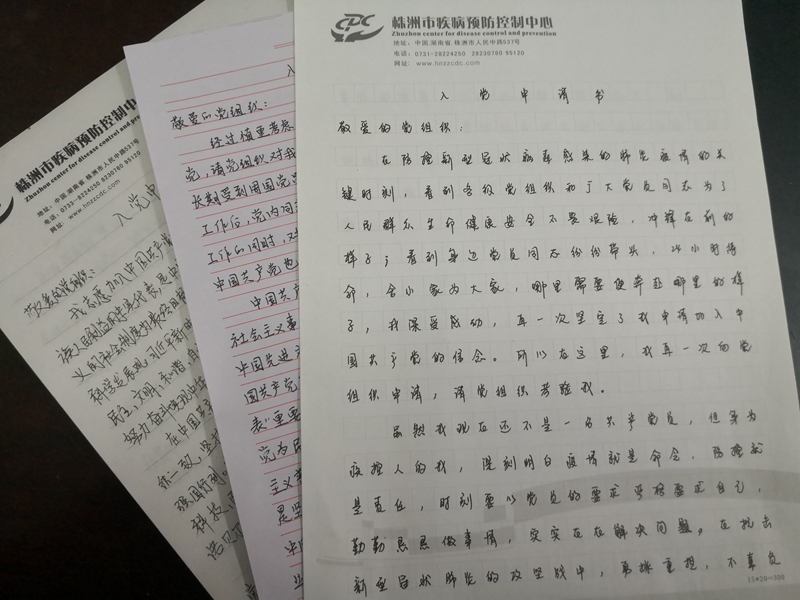 CPC
株洲市疾病预防控制中心
Zhuzhou center for disease control and prevention
地址：中国.湖南省 株洲市人民中路537号
电话：0731-28224250 28230780 95120
网址: www.hnzzcdc.com
入 党 申 请 书
敬爱的党组织：
在防控新型冠状病毒感染的肺炎疫情的关
键时刻，看到各级党组织和广大党员同志为了
人民群众生命健康安全不畏艰险，冲锋在前的
样子；看到身边党员同志纷纷带头，24小时待
命，舍小家为大家，哪里需要便奔赴哪里的样
子，我深受感动，再一次坚定了我申请加入中
国共产党的信念。所以在这里，我再一次向党
组织申请，请党组织考验我。
虽然我现在还不是一名共产党员，但身为
疾控人的我，深刻明白疫情就是命令，防控就
是责任，时刻要以党员的要求严格要求自己，
勤勤恳恳做事情，实实在在解决问题。在抗击
新型冠状肺炎的攻坚战中，勇挑重担，不辜负
15*20=300
入
敬爱的党组织：
经过慎重考虑
党，请党组织对我
长期受到周围党
工作后，党内同
工作的同时，对
中国共产党也
中国共产
社会主义事
中国先进
国共产党
表"重要
党为
主义事
是坚
中
株洲市疾病预防控制中
Zhuzhou center for disease control and pre
地址：中国.湖南省 株洲市人民中路537号
电话：0733-28224250 28230780 95120
网址: www.hnzzcdc.com
入党申
敬爱的党组织：
我志愿加入中国共产党
义的社会制度为最终目
科学发展观、习近平新时
民主、文明、和谐、自
努力奋斗
在中国共
强国
科技